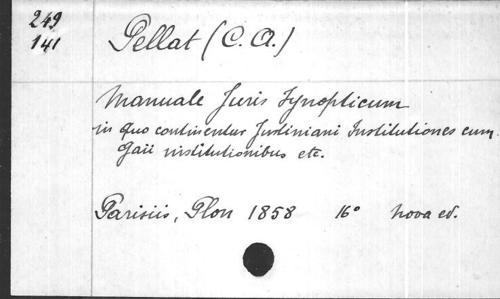 249
141
Pellat (C. A.)
Manuale Juris Synopticum
in quo continentur Justiniani Institutiones cum
Gaii institutionibus etc.
Parisiis, Plon 1858 16° nova ed.